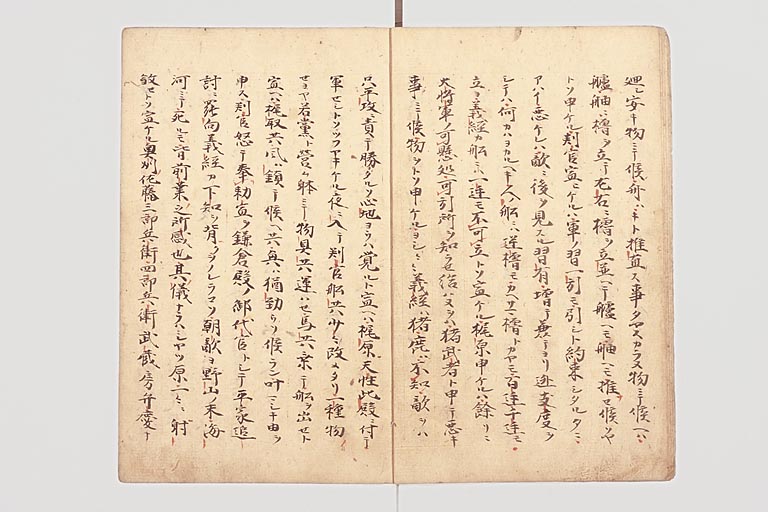 廻シ安キ物ニテ候舟ハキト推直ス事タヤスカラヌ物ニテ候ヘハ
艫舳ニ櫓ヲ立テ左右ニ櫓ヲ立並ヘテ艫ヘモ舳ヘモ推セ候ハヤ
トソ申ケル判官宣ヒケルハ軍ノ習ハ一引モ引シト約束シタルタニ
アハヒ悪ケレハ敵ニ後ヲ見スル習有増テ兼テヨリ逃支度ヲ
シテハ何カハヨカルヘキ人ノ船ニハ逆櫓モカヘサマ櫓トカヤモ百迚千迚モ
立ヨ義經カ船ニハ一迚モ不可立トソ宣ケル梶原申ケルハ餘リニ
大将軍ノ可懸処可引所ヲ知ラセ給ハヌヲハ猪武者ト申テ悪キ
事ニテ候物ヲトソ申ケルヨシヨシ義經ハ猪鹿ハ不知敵ヲハ
只平攻ニ責テ勝タルソ心地ヨクハ覚ルト宣ヘハ梶原天性此殿ニ付テ
軍セシトソツフヤキケル夜ニ入テ判官船共少々改メタリ一種物
セヨヤ若黨ト営ム躰ニテ物具共運ハセ馬共乗テ船ヲ出セト
宣ヘハ梶取共風ハ鎮テ候ヘ共奥ハ猶勁クソ候ラン叶マシキ由ヲ
申ス判官怒テ奉勅宣ヲ鎌倉殿ノ御代官トシテ平家追
討ニ罷向義經カ下知ヲ背ヲノレラコソ朝敵ヨ野山ノ末海
河ニテ死ルモ皆前業之所感也其儀ナラハシヤツ原一々ニ射
殺セトソ宣ケル奥州佐藤三郎兵衛四郎兵衛武蔵房弁慶ナ